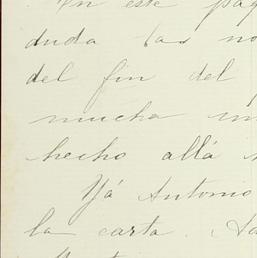 En este paq
duda las no
del fin del
mucha un
hecho allá
Yá Antonio
la carta. Ad